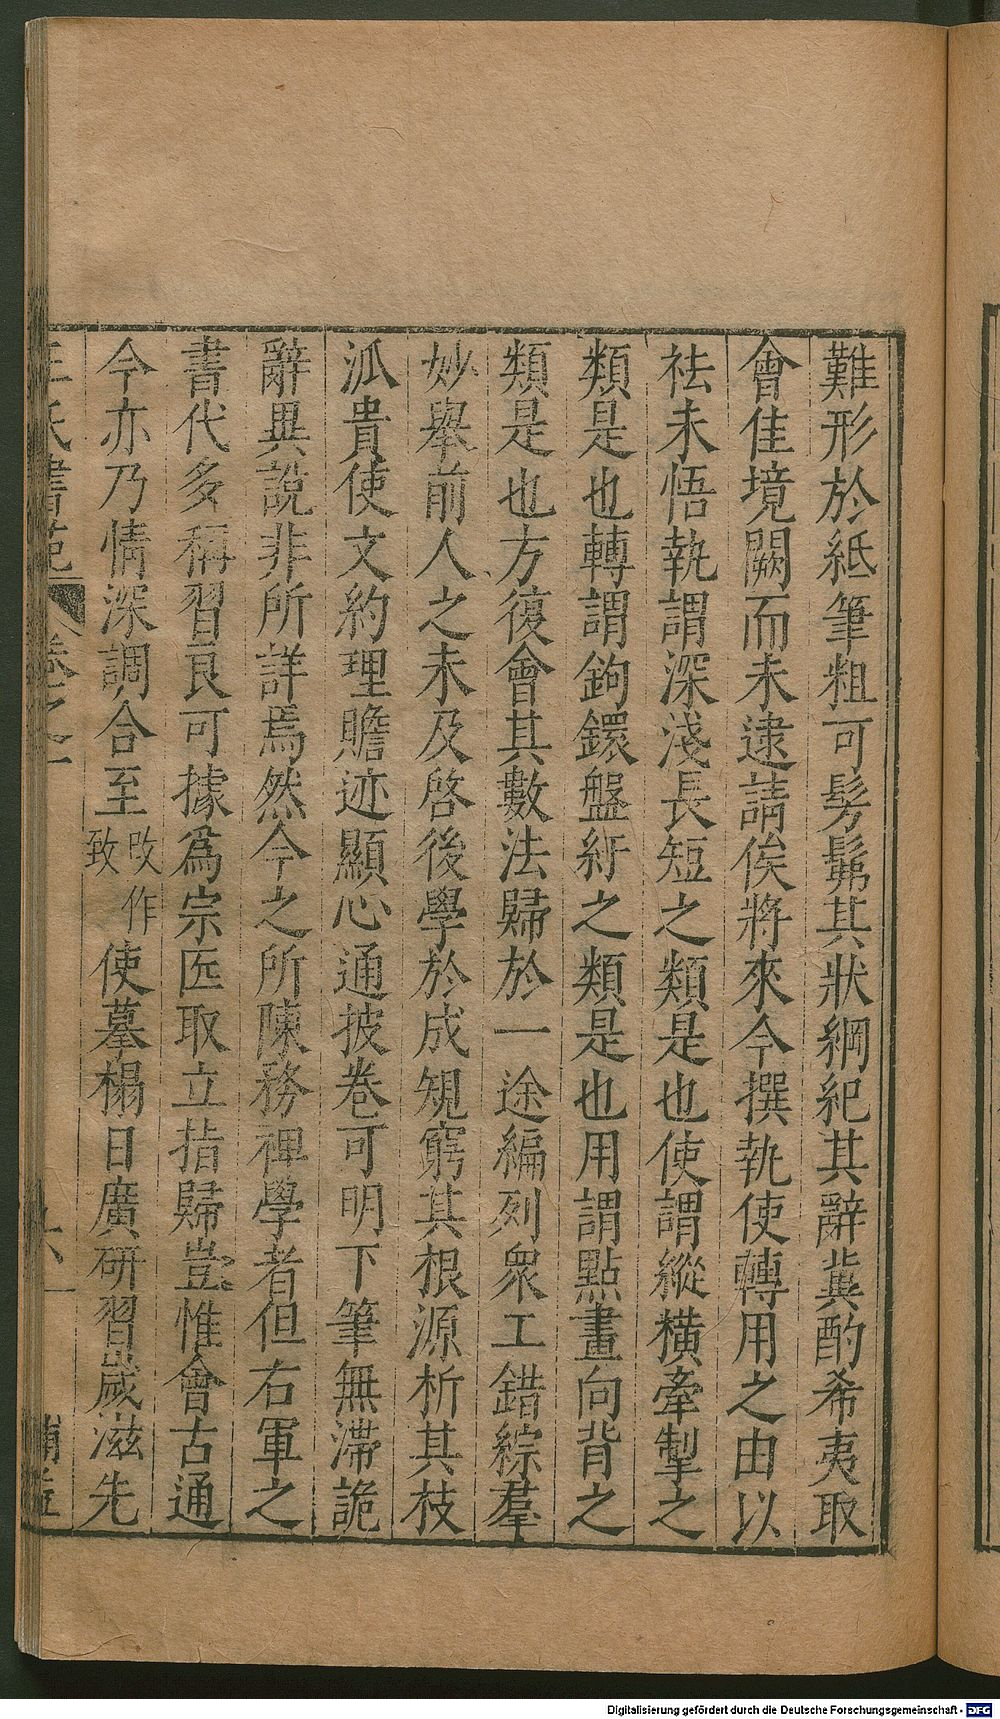 難形於紙筆粗可髣髴其狀綱紀其辭冀酌希夷取
會佳境闕而未逮請俟將來今撰執使轉用之由以
祛未悟執謂深淺長短之類是也使謂縱橫牽掣之
類是也轉謂鉤鐶盤紆之類是也用謂點畫向背之
類是也方復會其數法歸於一途編列衆工錯綜羣
妙舉前人之未及啓後學於成規窮其根源析其枝
泒貴使文約理贍迹顯心通披卷可明下筆無滯詭
辭異說非所詳焉然今之所陳務裨學者但右軍之
書代多稱習良可據爲宗匠取立指歸豈惟會古通
今亦乃情深調合至
改作
致
使摹榻日廣研習歲滋先
王氏書苑
卷之一
Digitalisierung gefördert durch die Deutsche Forschungsgemeinschaft - DFG